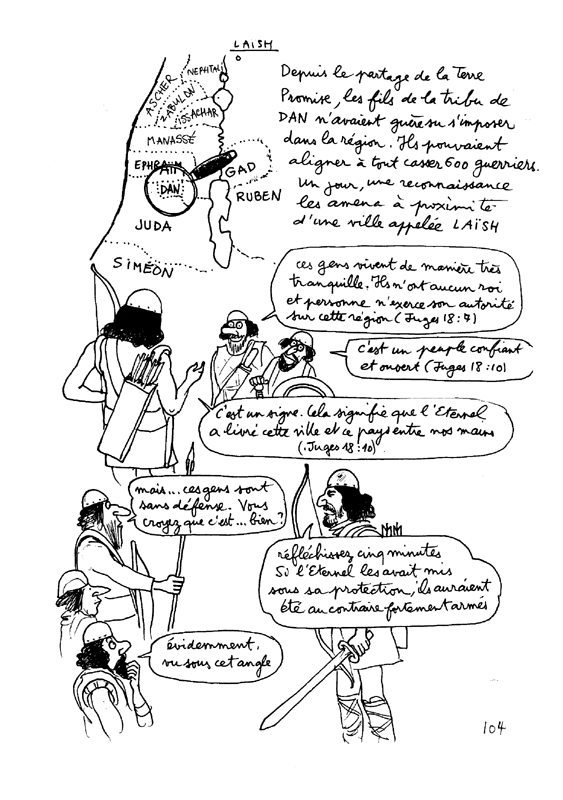 LAISH
NEPHTALI
ASCHER
ZABULON
ISSACHAR
MANASSÉ
EPHRAIM
DAN
GAD
RUBEN
JUDA
SIMÉON
Depuis le partage de la Terre
Promise, les fils de la tribu de
DAN n'avaient guère su s'imposer
dans la région. Ils pouvaient
aligner à tout casser 600 guerriers.
Un jour, une reconnaissance
les amena à proximité
d'une ville appelée LAÏSH
ces gens vivent de manière très
tranquille. Ils n'ont aucun roi
et personne n'exerce son autorité
sur cette région (Juges 18:7)
c'est un peuple confiant
et ouvert (Juges 18:10)
C'est un signe. Cela signifie que l'Eternel
a livré cette ville et ce pays entre nos mains
(Juges 18:10)
mais... ces gens sont
sans défense. Vous
croyez que c'est... bien?
réfléchissez cinq minutes
Si l'Eternel les avait mis
sous sa protection, ils auraient
été au contraire fortement armés
évidemment,
vu sous cet angle
104